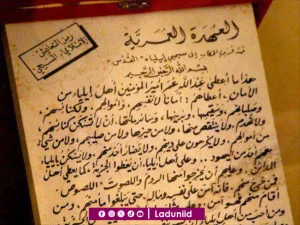 العهدة العمرية
رمز التعايش
الإسلامي المسيحي
بسم الله الرحمن الرحيم
هذا ما أعطى عبد الله عمر أمير المؤمنين أهل إيلياء من
الأمان. أعطاهم أمانا لأنفسهم وأموالهم، ولكنائسهم
وصلبانهم، وسقيمها وبريئها وسائر ملتها. أن لا تسكن كنائسهم
ولا تهدم، ولا ينتقص منها ولا من حيزها ولا من صليبهم، ولا من شيء
من أموالهم، ولا يكرهون على دينهم، ولا يضار أحد منهم، ولا يسكن بإيلياء
معهم أحد من اليهود.. وعلى أهل إيلياء أن يعطوا الجزية كما يعطي أهل
المدائن. وعليهم أن يخرجوا منها الروم واللصوت (اللصوص)
Laduniid